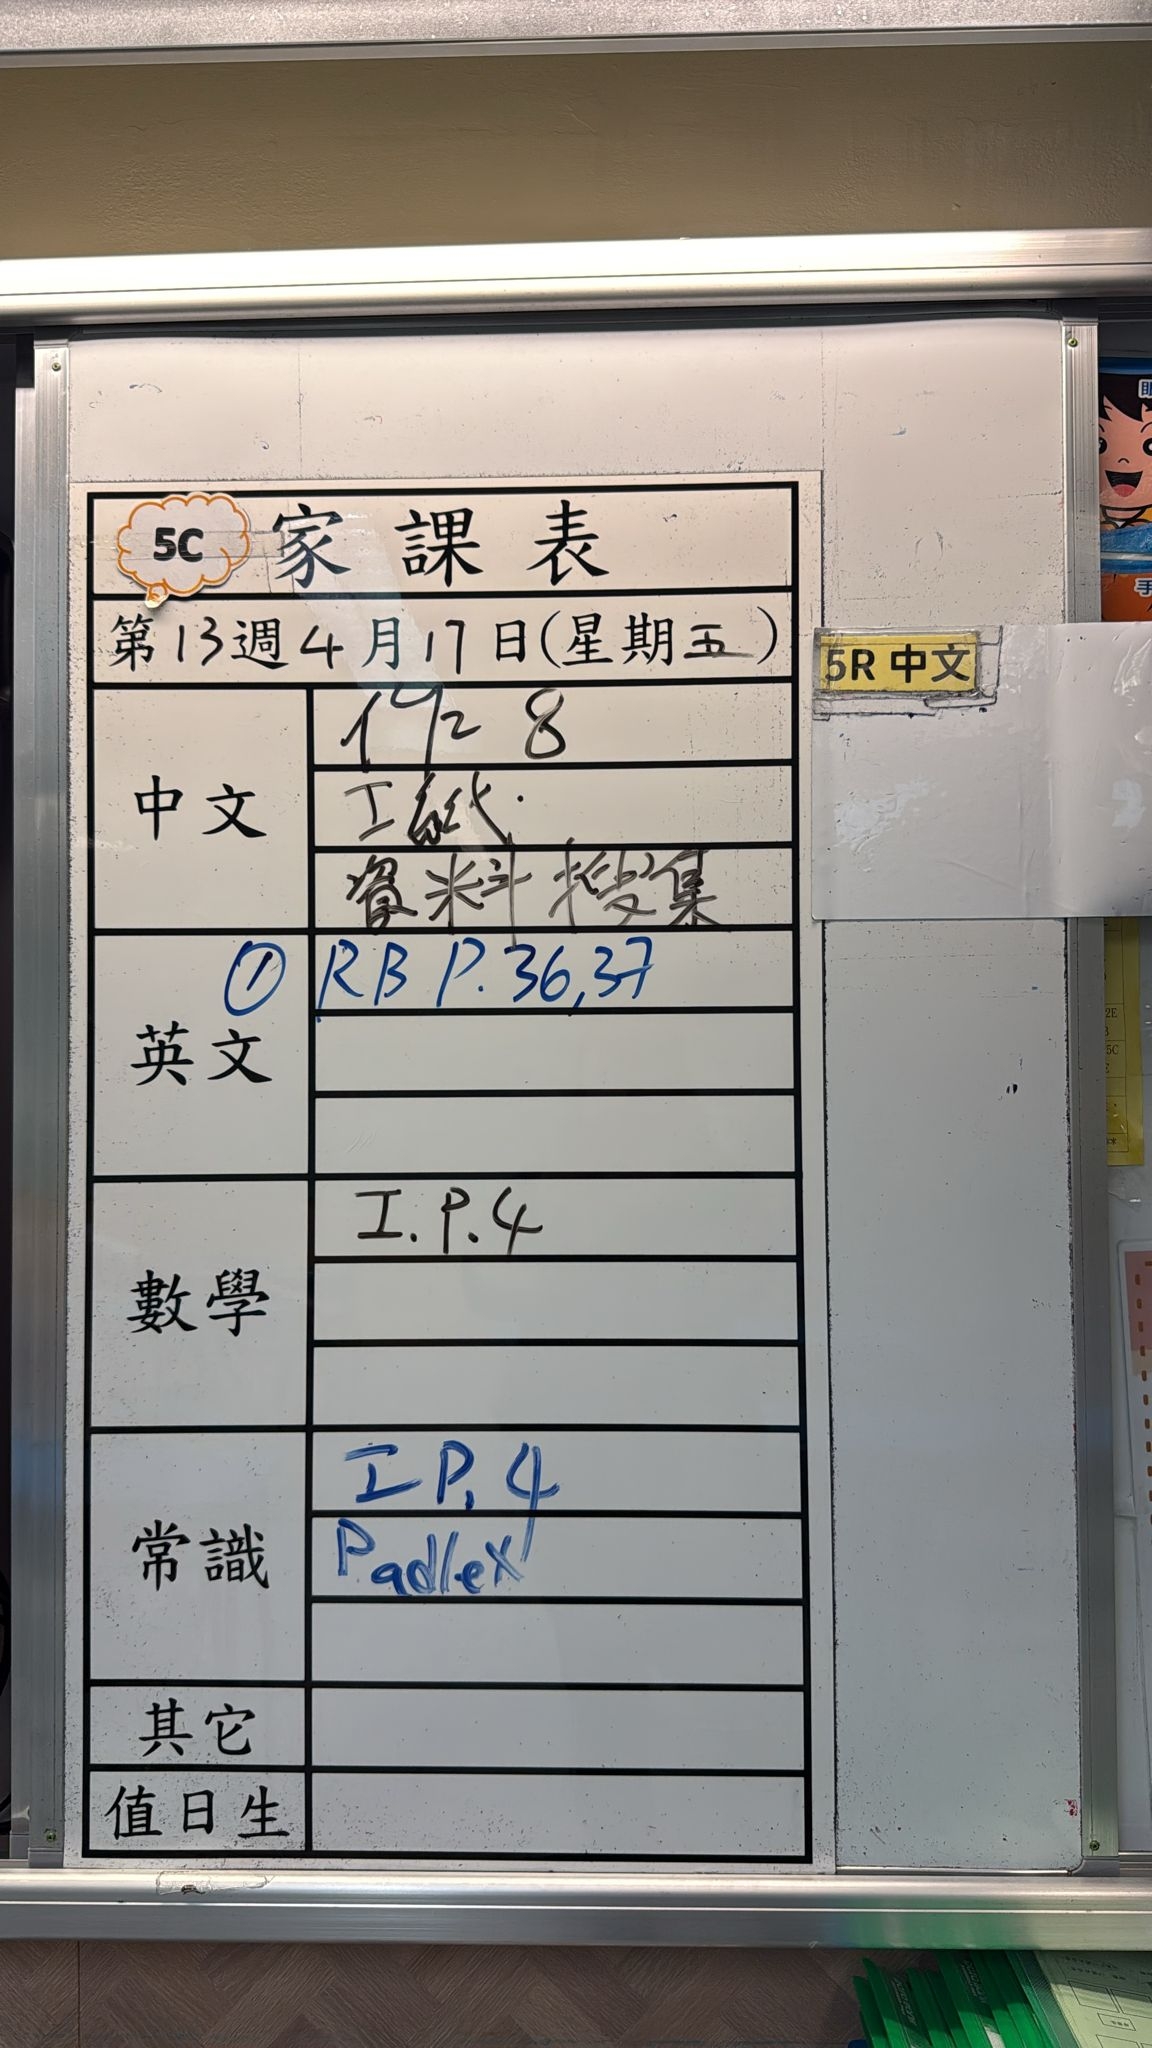 5C 家課表
第13週4月17日(星期五)
5R 中文
中文
作 8
工紙
資料搜集
英文
① RB P. 36,37
數學
I.P.4
常識
I P. 4
Padlet
其它
值日生